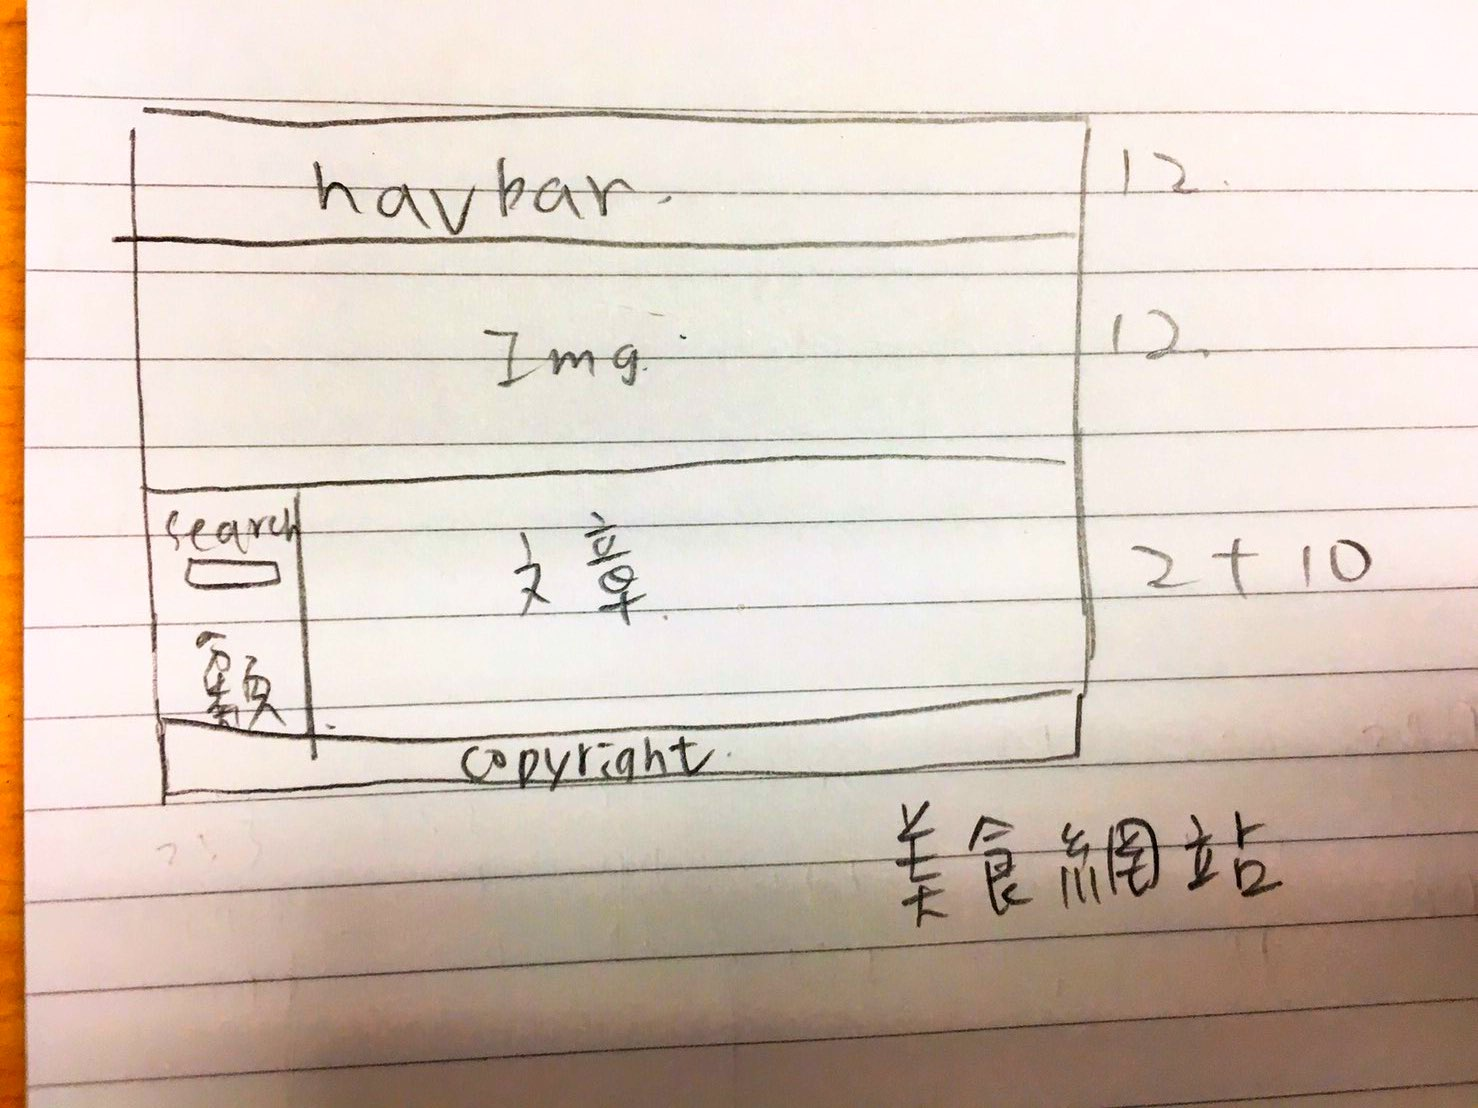 navbar. 12.
Img. 12.
search 文章. 2+10
分類
copyright.
美食網站